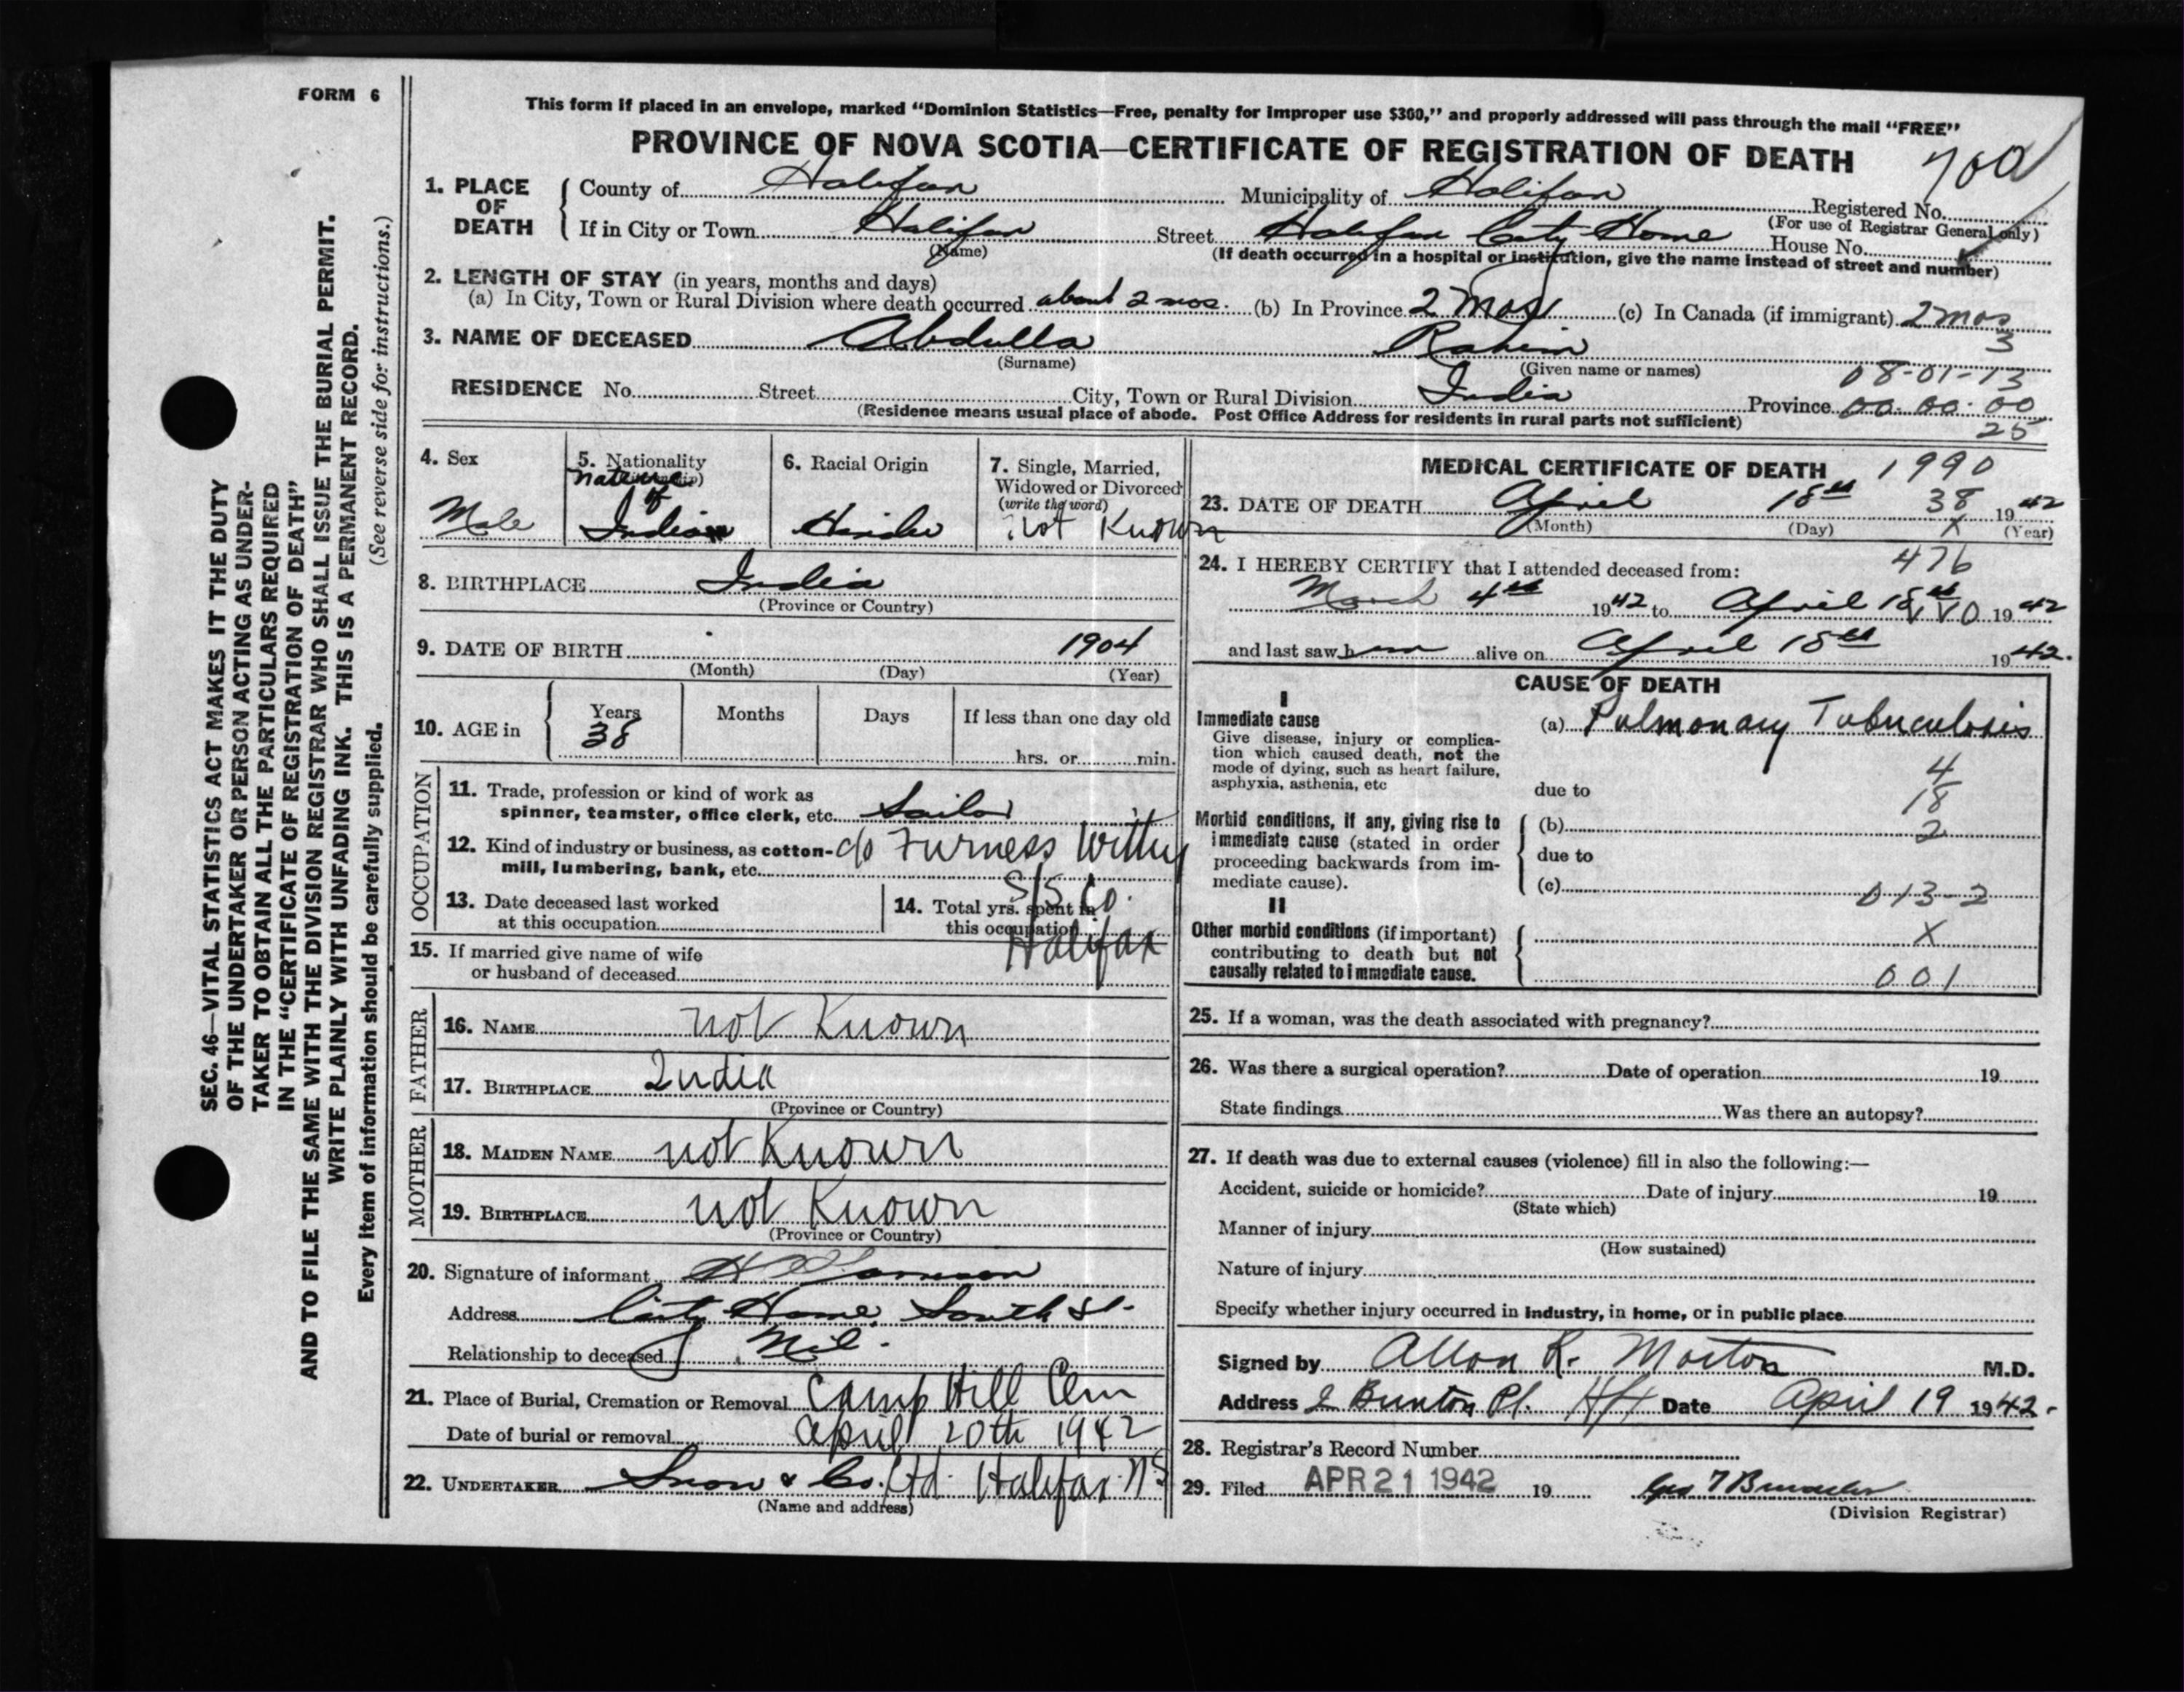 FORM 6
This form if placed in an envelope, marked “Dominion Statistics—Free, penalty for improper use $300,” and properly addressed will pass through the mail “FREE”
PROVINCE OF NOVA SCOTIA—CERTIFICATE OF REGISTRATION OF DEATH
700
1. PLACE OF DEATH
County of Halifax Municipality of Halifax Registered No.
(For use of Registrar General only)
If in City or Town Halifax Street Halifax City Home House No.
(Name) (If death occurred in a hospital or institution, give the name instead of street and number)
2. LENGTH OF STAY (in years, months and days)
(a) In City, Town or Rural Division where death occurred about 2 mos. (b) In Province 2 Mos (c) In Canada (if immigrant) 2 mos
3
3. NAME OF DECEASED Abdulla Rahim
(Surname) (Given name or names)
08-01-13
RESIDENCE No. Street City, Town or Rural Division India Province 00.00.00
(Residence means usual place of abode. Post Office Address for residents in rural parts not sufficient)
25
4. Sex
Male
5. Nationality
native of
India
6. Racial Origin
Hindu
7. Single, Married, Widowed or Divorced
(write the word)
Not Known
8. BIRTHPLACE India
(Province or Country)
9. DATE OF BIRTH 1904
(Month) (Day) (Year)
10. AGE in
Years Months Days If less than one day old
38 hrs. or min.
OCCUPATION
11. Trade, profession or kind of work as
spinner, teamster, office clerk, etc. Sailor
12. Kind of industry or business, as cotton-
mill, lumbering, bank, etc. c/o Furness Withy
S/S Co.
Halifax
13. Date deceased last worked
at this occupation
14. Total yrs. spent in
this occupation
15. If married give name of wife
or husband of deceased
FATHER
16. NAME not Known
17. BIRTHPLACE India
(Province or Country)
MOTHER
18. MAIDEN NAME not Known
19. BIRTHPLACE not Known
(Province or Country)
20. Signature of informant
Address City Home, South St.
Relationship to deceased Nil.
21. Place of Burial, Cremation or Removal Camp Hill Cem
Date of burial or removal April 20th 1942
22. UNDERTAKER Snow & Co. Ltd. Halifax NS
(Name and address)
MEDICAL CERTIFICATE OF DEATH 1990
23. DATE OF DEATH April 18th 38 19 42
(Month) (Day) X (Year)
24. I HEREBY CERTIFY that I attended deceased from: 476
March 4th 19 42 to April 18th 19 42
and last saw him alive on April 18th 19 42.
CAUSE OF DEATH
I
Immediate cause
Give disease, injury or complica-
tion which caused death, not the
mode of dying, such as heart failure,
asphyxia, asthenia, etc
(a) Pulmonary Tuberculosis
4
due to 18
Morbid conditions, if any, giving rise to
immediate cause (stated in order
proceeding backwards from im-
mediate cause).
(b) 2
due to
(c) 013-2
II
Other morbid conditions (if important)
contributing to death but not
causally related to immediate cause.
X
001
25. If a woman, was the death associated with pregnancy?
26. Was there a surgical operation? Date of operation 19
State findings Was there an autopsy?
27. If death was due to external causes (violence) fill in also the following:—
Accident, suicide or homicide? Date of injury 19
(State which)
Manner of injury
(How sustained)
Nature of injury
Specify whether injury occurred in industry, in home, or in public place
Signed by Allan R. Morton M.D.
Address Pl. Hfx Date April 19 1942.
28. Registrar's Record Number
29. Filed APR 21 1942 19
(Division Registrar)
SEC. 46—VITAL STATISTICS ACT MAKES IT THE DUTY
OF THE UNDERTAKER OR PERSON ACTING AS UNDER-
TAKER TO OBTAIN ALL THE PARTICULARS REQUIRED
IN THE “CERTIFICATE OF REGISTRATION OF DEATH”
AND TO FILE THE SAME WITH THE DIVISION REGISTRAR WHO SHALL ISSUE THE BURIAL PERMIT.
WRITE PLAINLY WITH UNFADING INK. THIS IS A PERMANENT RECORD.
Every item of information should be carefully supplied. (See reverse side for instructions.)